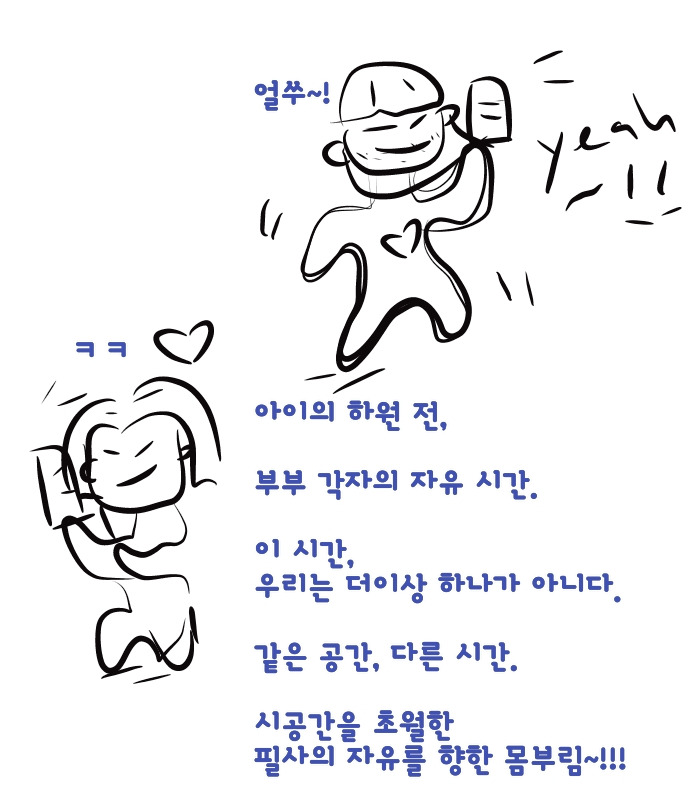 얼쑤~!
yeah !!
ㅋ ㅋ
아이의 하원 전,
부부 각자의 자유 시간.
이 시간,
우리는 더이상 하나가 아니다.
같은 공간, 다른 시간.
시공간을 초월한
필사의 자유를 향한 몸부림~!!!